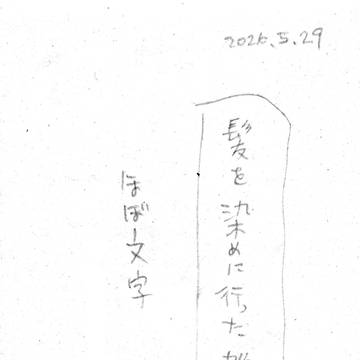 2026.5.29
髪を染めに行ったが
ほぼ文字